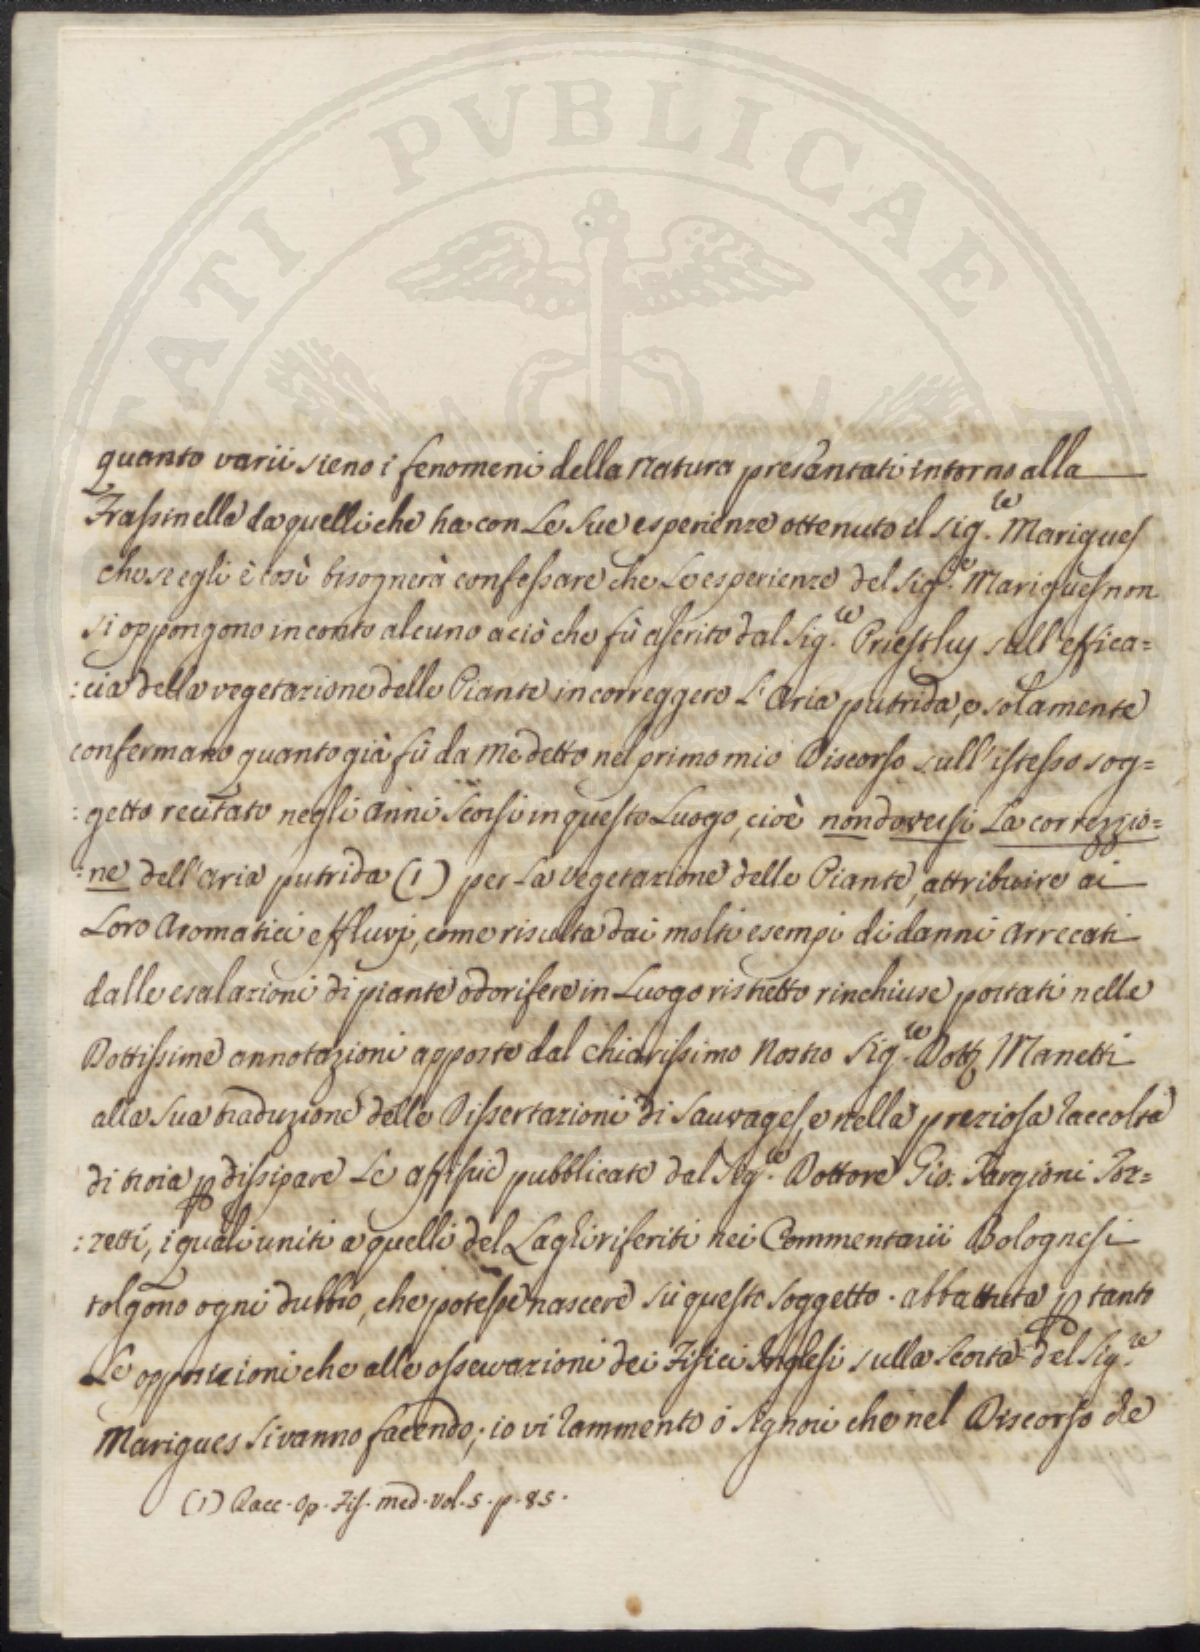 ATI PVBLICAE
quanto varii sieno i fenomeni della natura presentati intorno alla
Frassinella da quelli che ha con Le Sue esperienze ottenuto il sig.re Marigues
che se egli è così bisognerà confessare che Le esperienze del Sig.re Marigues non
si oppongono in conto alcuno a ciò che fù asserito dal Sig.re Priestley sull'effica=
:cia della vegetazione delle Piante in correggere L'Aria putrida, e solamente
confermano quanto già fù da me detto nel primo mio Discorso sull'istesso sog=
:getto recitato negli Anni Scorsi in questo Luogo, cioè non doversi La correzzio=
:ne dell'Aria putrida (1) per La vegetazione delle Piante, attribuire ai
Loro Aromatici effluvj, come risulta dai molti esempi di danni arrecati
dalle esalazioni di piante odorifere in Luogo ristretto rinchiuse portati nelle
Dottissime annotazioni apposte dal chiarissimo Nostro Sig.re Dott. Manetti
alla Sua traduzione delle Dissertazioni di Sauvages, e nella preziosa raccolta
di teorie p dissipare Le Asfisie pubblicate dal Sig.re Dottore Gio: Targioni Toz=
:zetti, i quali uniti a quelli del Laghi riferiti nei Commentarii Bolognesi
tolgono ogni dubbio, che potesse nascere sù questo soggetto. abbattuta p tanto
Le opposizioni che alle osservazioni dei Fisici Inglesi sulla Scorta del Sig.re
Marigues si vanno facendo; io vi rammento ó Signori che nel Discorso de
(1) Racc. Op. Fis. med. vol. 5. p. 85.